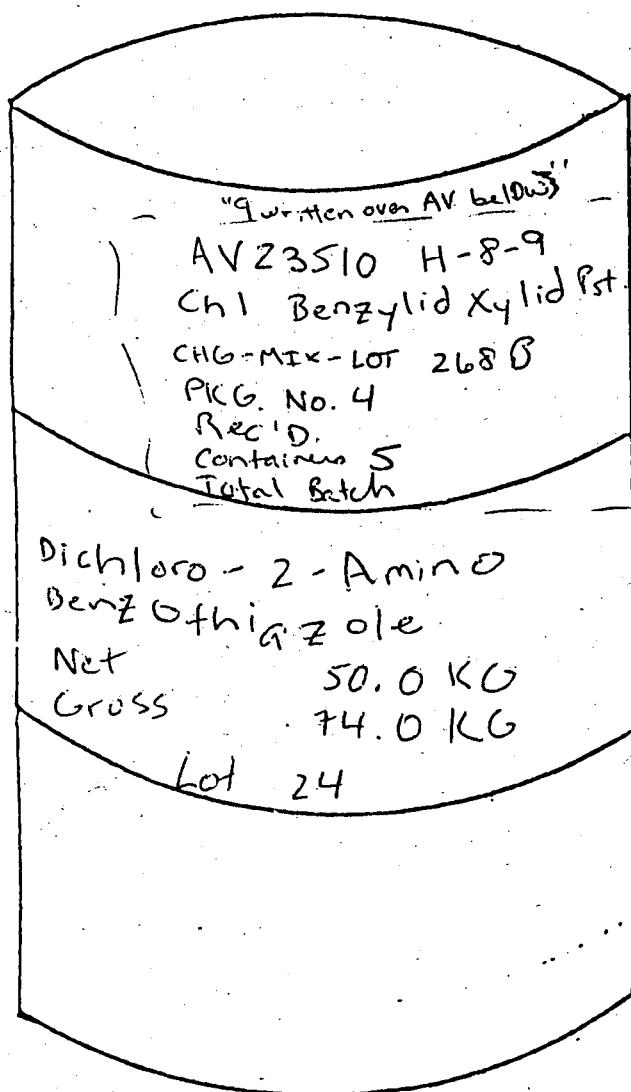 "9 written over AV below"
AV23510 H-8-9
Chl Benzylid Xylid Pst.
CHG-MIX-LOT 268B
PKG. No. 4
Rec'D.
Containers 5
Total Batch
Dichloro - 2 - Amino
Benzothiazole
Net 50.0 KG
Gross 74.0 KG
Lot 24